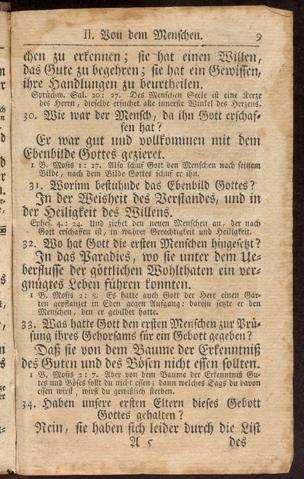 II. Von dem Menschen. 9
chen zu erkennen; sie hat einen Willen,
das Gute zu begehren; sie hat ein Gewissen,
ihre Handlungen zu beurtheilen.
Sprüchw. Sal. 20: 27. Des Menschen Seele ist eine Kerze
des Herrn, dieselbe ersuchet alle innerste Winkel des Herzens.
30. Wie war der Mensch, da ihn Gott erschaf-
fen hat?
Er war gut und vollkommen mit dem
Ebenbilde Gottes gezieret.
1 B. Mosis 1: 27. Also schuf Gott den Menschen nach seinem
Bilde, nach dem Bilde Gottes schuf er ihn.
31. Worinn bestuhnde das Ebenbild Gottes?
In der Weisheit des Verstandes, und in
der Heiligkeit des Willens.
Ephes. 4: 24. Und ziehet den neuen Menschen an, der nach
Gott erschaffen ist, in wahrer Gerechtigkeit und Heiligkeit.
32. Wo hat Gott die ersten Menschen hingesetzt?
In das Paradies, wo sie unter dem Ue-
berflusse der göttlichen Wohlthaten ein ver-
gnügtes Leben führen konnten.
1 B. Mosis 2: 8. Es hatte auch Gott der Herr einen Gar-
ten gepflanzet in Eden gegen Aufgang: darein setzte er den
Menschen, den er gebildet hatte.
33. Was hatte Gott den ersten Menschen zur Prü-
fung ihres Gehorsams für ein Gebott gegeben?
Daß sie von dem Baume der Erkenntniß
des Guten und des Bösen nicht essen sollten.
1 B. Mosis 2: 7. Aber von dem Baume der Erkenntniß Gu-
tes und Böses sollt du nicht essen; dann welches Tags du davon
essen wirst, wirst du gewißlich sterben.
34. Haben unsere ersten Eltern dieses Gebott
Gottes gehalten?
Nein, sie haben sich leider durch die List
A 5 des